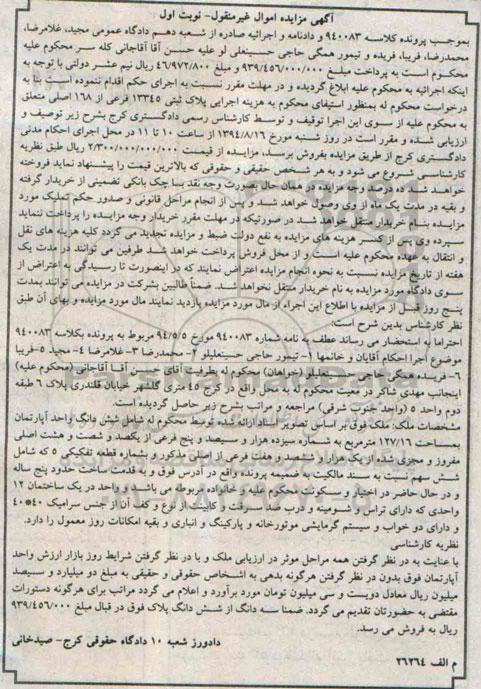 آگهی مزایده اموال غیرمنقول- نوبت اول
بموجب پرونده کلاسه ۹۴۰۰۸۳ و دادنامه و اجرائیه صادره از شعبه دهم دادگاه عمومی مجید، غلامرضا،
محمدرضا، فریبا، فریده و تیمور همگی حاجی حسینعلی لو علیه حسن آقا آقاجانی کله سر محکوم علیه
محکوم است به پرداخت مبلغ ۹۳۹/۴۵۶/۰۰۰/۰۰۰ و مبلغ ۴۶/۹۷۲/۸۰۰ ریال نیم عشر دولتی با توجه به
اینکه اجرائیه به محکوم علیه ابلاغ گردیده و در مهلت مقرر نسبت به اجرای حکم اقدام ننموده است بنا به
درخواست محکوم له بمنظور استیفای محکوم به هزینه اجرایی پلاک ثبتی ۱۳۳۴۵ فرعی از ۱۶۸ اصلی متعلق
به محکوم علیه از سوی این اجرا توقیف و توسط کارشناس رسمی دادگستری کرج بشرح زیر توصیف و
ارزیابی شده و مقرر است در روز شنبه مورخ ۱۳۹۴/۸/۱۶ از ساعت ۱۰ تا ۱۱ در محل اجرای احکام مدنی
دادگستری کرج از طریق مزایده بفروش برسد، مزایده از قیمت ۲/۳۰۰/۰۰۰/۰۰۰/۰۰۰ ریال طبق نظریه
کارشناسی شروع می شود و به هر شخص حقیقی و حقوقی که بالاترین قیمت را پیشنهاد نماید فروخته
خواهد شد ده درصد وجه مزایده در همان حال بصورت وجه نقد یا چک بانکی تضمینی از خریدار گرفته
و بقیه در مدت یک ماه از وی وصول خواهد شد و پس از انجام مراحل قانونی و صدور حکم تملیک مورد
مزایده بنام خریدار منتقل خواهد شد در صورتیکه در مهلت مقرر خریدار وجه مزایده را پرداخت ننماید
سپرده وی پس از کسر هزینه های مزایده به نفع دولت ضبط و مزایده تجدید می گردد کلیه هزینه های نقل
و انتقال به عهده محکوم علیه است و از محل فروش پرداخت خواهد شد طرفین می توانند در مدت یک
هفته از تاریخ مزایده نسبت به نحوه انجام مزایده اعتراض نمایند که در اینصورت تا رسیدگی به اعتراض از
سوی دادگاه مورد مزایده به نام خریدار منتقل نخواهد شد. ضمناً طالبین بشرکت در مزایده می توانند بمدت
پنج روز قبل از مزایده با اطلاع این اجراء از مال مورد مزایده بازدید نمایند مال مورد مزایده و بهای آن طبق
نظر کارشناس بدین شرح است:
احتراما به استحضار می رساند عطف به نامه شماره ۹۴۰۰۸۳ مورخ ۹۴/۵/۵ مربوط به پرونده بکلاسه ۹۴۰۰۸۳
موضوع اجرا احکام آقایان و خانمها ۱- تیمور حاجی حسینعلیلو ۲- محمدرضا ۳- غلامرضا ۴- مجید ۵- فریبا
۶- فریده همگی حاجی حسینعلیلو (خواهان) محکوم له بطرفیت آقای حسن آقا آقاجانی (محکوم علیه)
اینجانب مهدی شاکر در معیت محکوم له به محل واقع در کرج ۴۵ متری گلشهر خیابان قلندری پلاک ۶ طبقه
دوم واحد ۵ (واحد جنوب شرقی) مراجعه و مراتب بشرح زیر حاصل گردیده است.
مشخصات ملک: ملک فوق بر اساس تصویر اسناد ارائه شده توسط محکوم له شامل شش دانگ واحد آپارتمان
بمساحت ۱۲۷/۱۶ مترمربع به شماره سیزده هزار و سیصد و پنج فرعی از یکصد و شصت و هشت اصلی
مفروز و مجزی شده از یک هزار و ششصد و هفت فرعی از اصلی مذکور و بشماره قطعه تفکیکی ۵ که شامل
شش سهم نسبت به سند مالکیت به ضمیمه پرونده واقع در آدرس فوق و به قدمت ساخت حدود پنج ساله
و در حال حاضر در اختیار و سکونت محکوم علیه و خانواده مربوطه می باشد و واحد در یک ساختمان ۱۲
واحدی که دارای تراس و شومینه و درب ضد سرقت و کابینت از نوع و کف آن از جنس سرامیک ۴۰*۴۰
و دارای دو خواب و سیستم گرمایشی موتورخانه و پارکینگ و انباری و بقیه امکانات روز معمول را دارد.
نظریه کارشناسی
با عنایت به در نظر گرفتن همه مراحل موثر در ارزیابی ملک و با در نظر گرفتن شرایط روز بازار ارزش واحد
آپارتمان فوق بدون در نظر گرفتن هرگونه بدهی به اشخاص حقوقی و حقیقی به مبلغ دو میلیارد و سیصد
میلیون ریال معادل دویست و سی میلیون تومان مورد برآورد و اعلام می گردد مراتب برای هرگونه دستورات
مقتضی به حضورتان تقدیم می گردد. ضمنا سه دانگ از شش دانگ پلاک فوق در قبال مبلغ ۹۳۹/۴۵۶/۰۰۰
ریال به فروش می رسد.
دادورز شعبه ۱۰ دادگاه حقوقی کرج- صیدخانی
م الف ۲۶۲۶۴